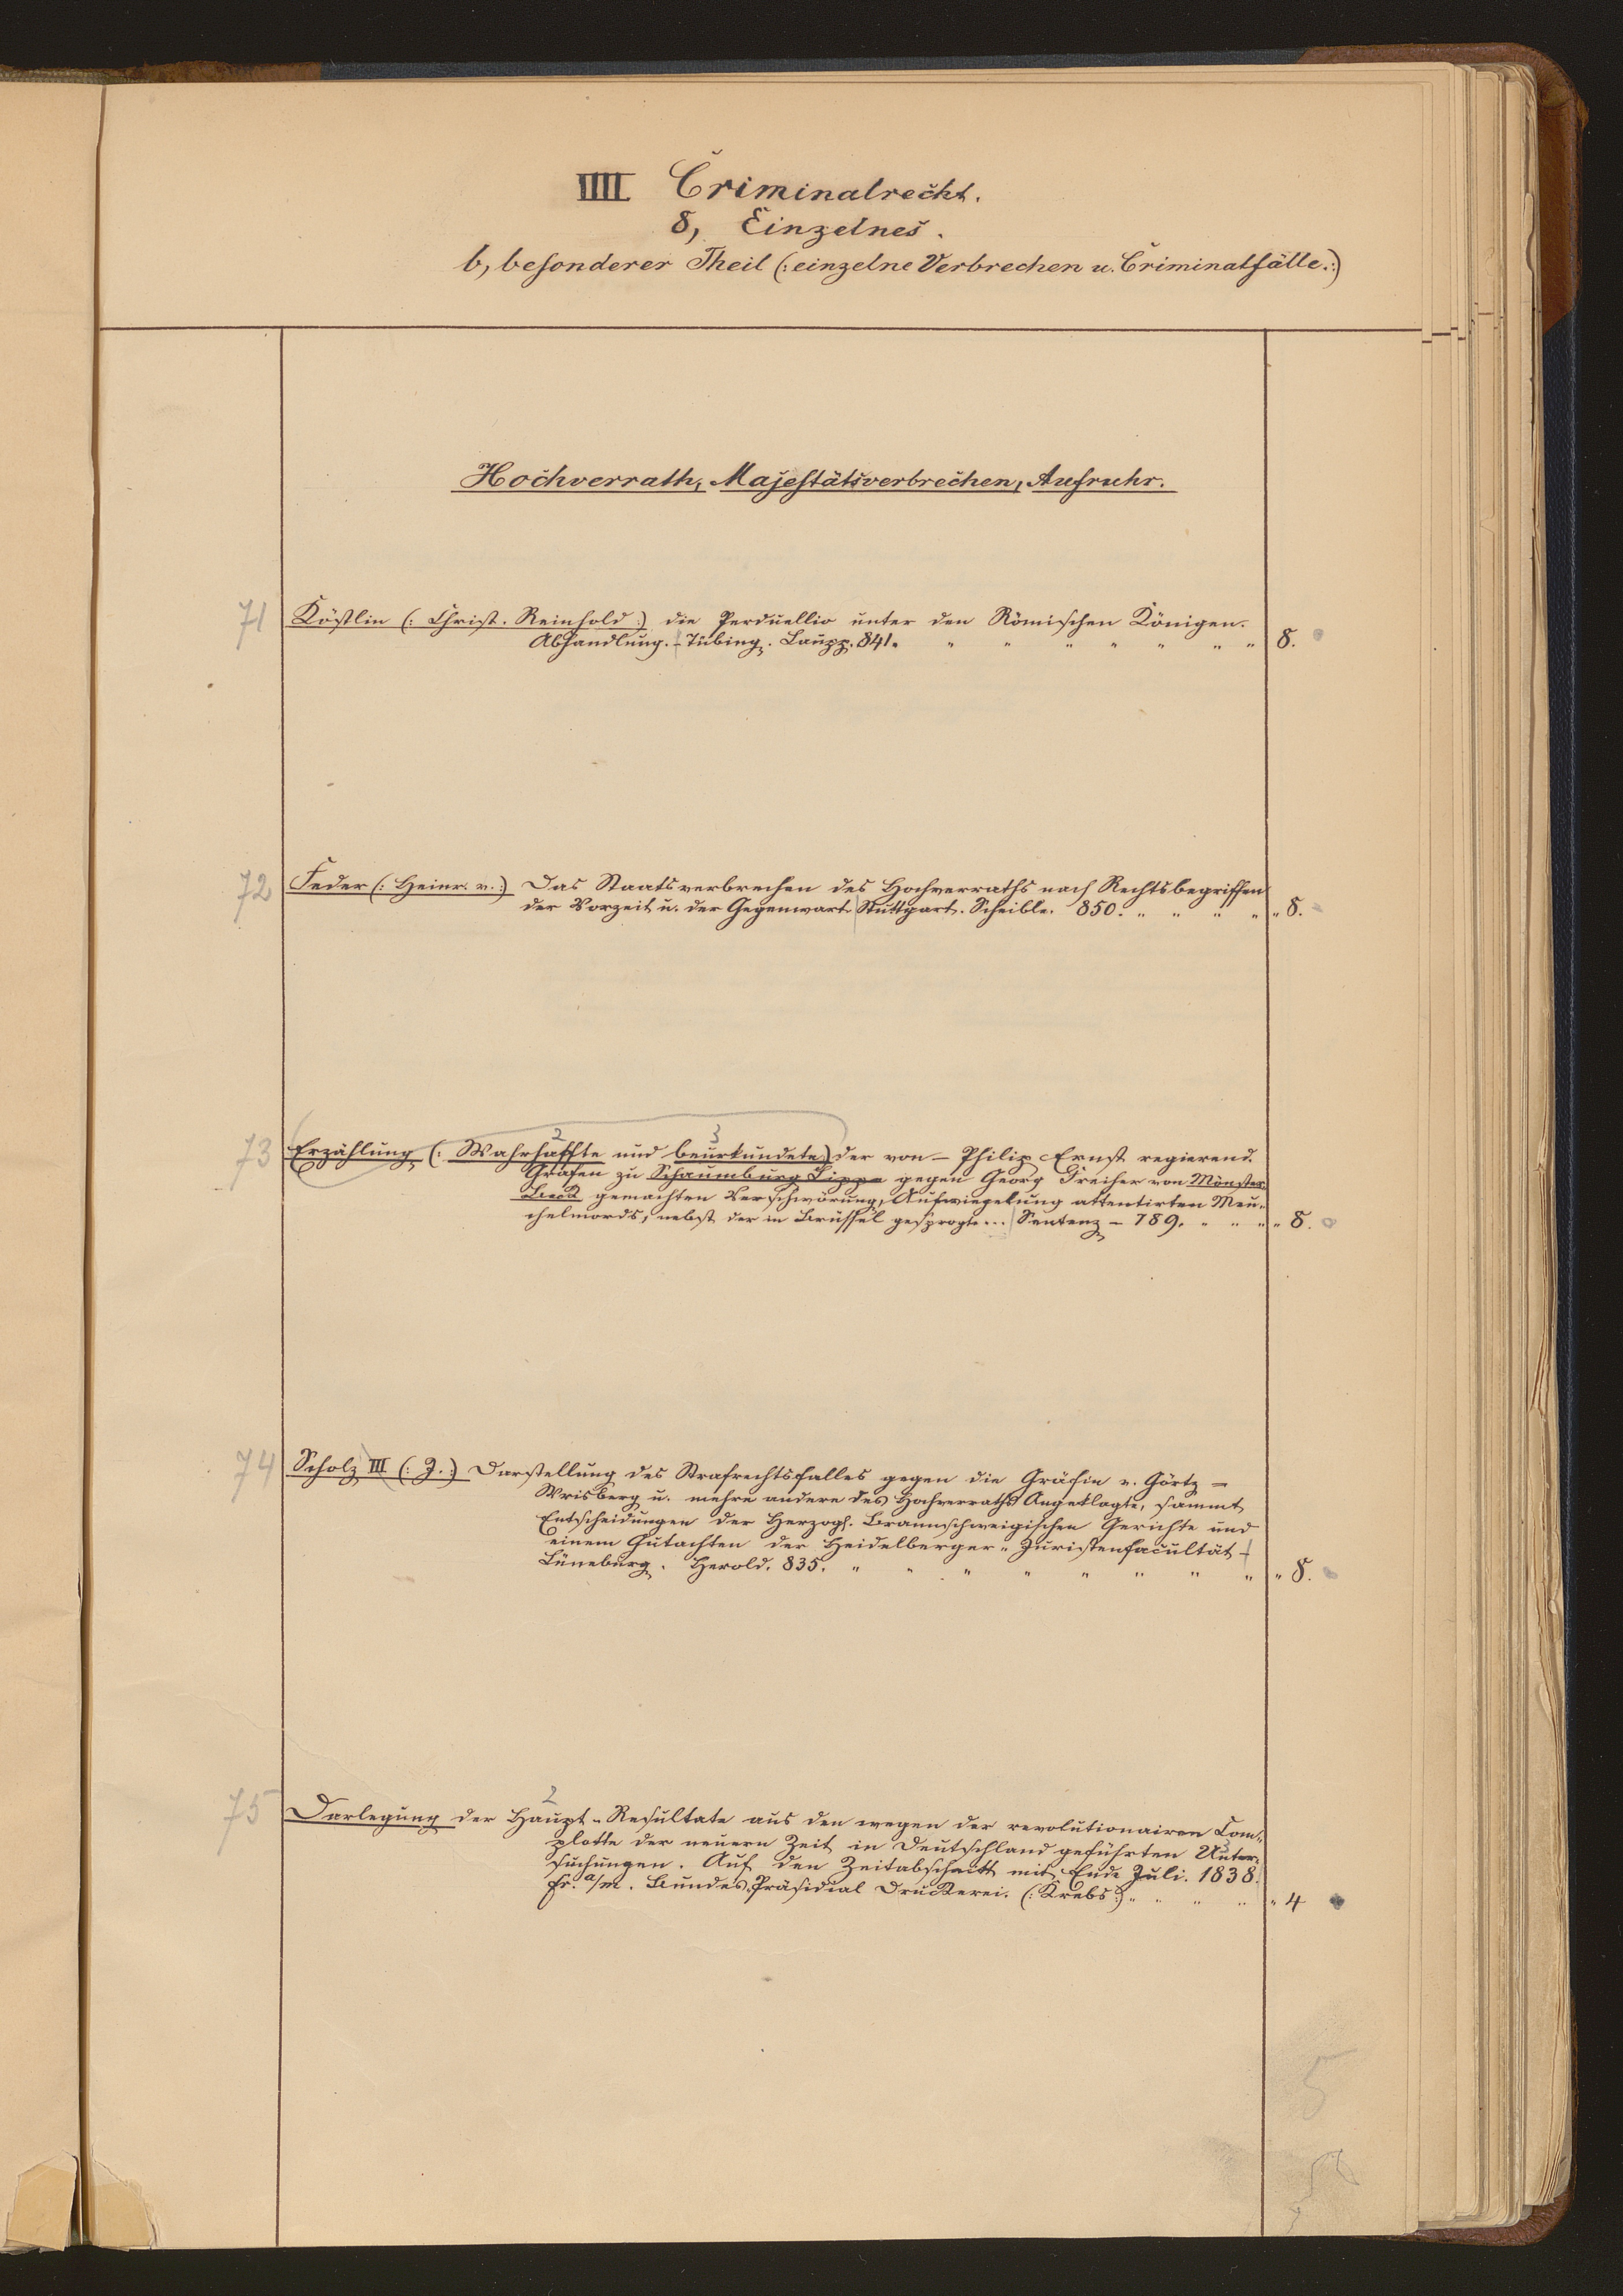 IIII Criminalrecht.
8, Einzelnes.
b, besonderer Theil (: einzelne Verbrechen u. Criminalfälle. :)
Hochverrath, Majestätsverbrechen, Aufruhr.
71 Köstlin (: Christ. Reinhold :) die Perduellio unter den Römischen Königen.
Abhandlung. - Tübing. Laupp. 841. " " " " " " " 8.
72 Feder (: Heinr. v. :) Das Staatsverbrechen des Hochverraths nach Rechtsbegriffen
der Vorzeit u. der Gegenwart. Stuttgart. Scheible. 850. " " " " " 8.
73 Erzählung (: Wahrhaffte und beurkundete) der von - Philip Ernst regierend.
Grafen zu Schaumburg Lippe gegen Georg Freiher von Mönster
Beck gemachten Verschwörung, Aufwiegelung attentirten Meu-
chelmords, nebst der in Brüssel ... Sentenz - 789. " " " " 8.
74 Scholz III (: J. :) Darstellung des Strafrechtsfalles gegen die Gräfin v. Görtz =
Wrisberg u. mehre andere des Hochverraths Angeklagte, sammt
Entscheidungen der Herzogl. Braunschweigischen Gerichte und
einem Gutachten der Heidelberger Juristenfacultät -
Lüneburg. Herold. 835. " " " " " " " " " 8.
75 Darlegung der Haupt-Resultate aus den wegen der revolutionairen Com-
plotte der neuern Zeit in Deutschland geführten Unter-
suchungen. Auf den Zeitabschnitt mit Ende Juli. 1838.
Fr. a/m. Bundes-Präsidial Druckerei. (: Krebs :) " " " " " 4
5